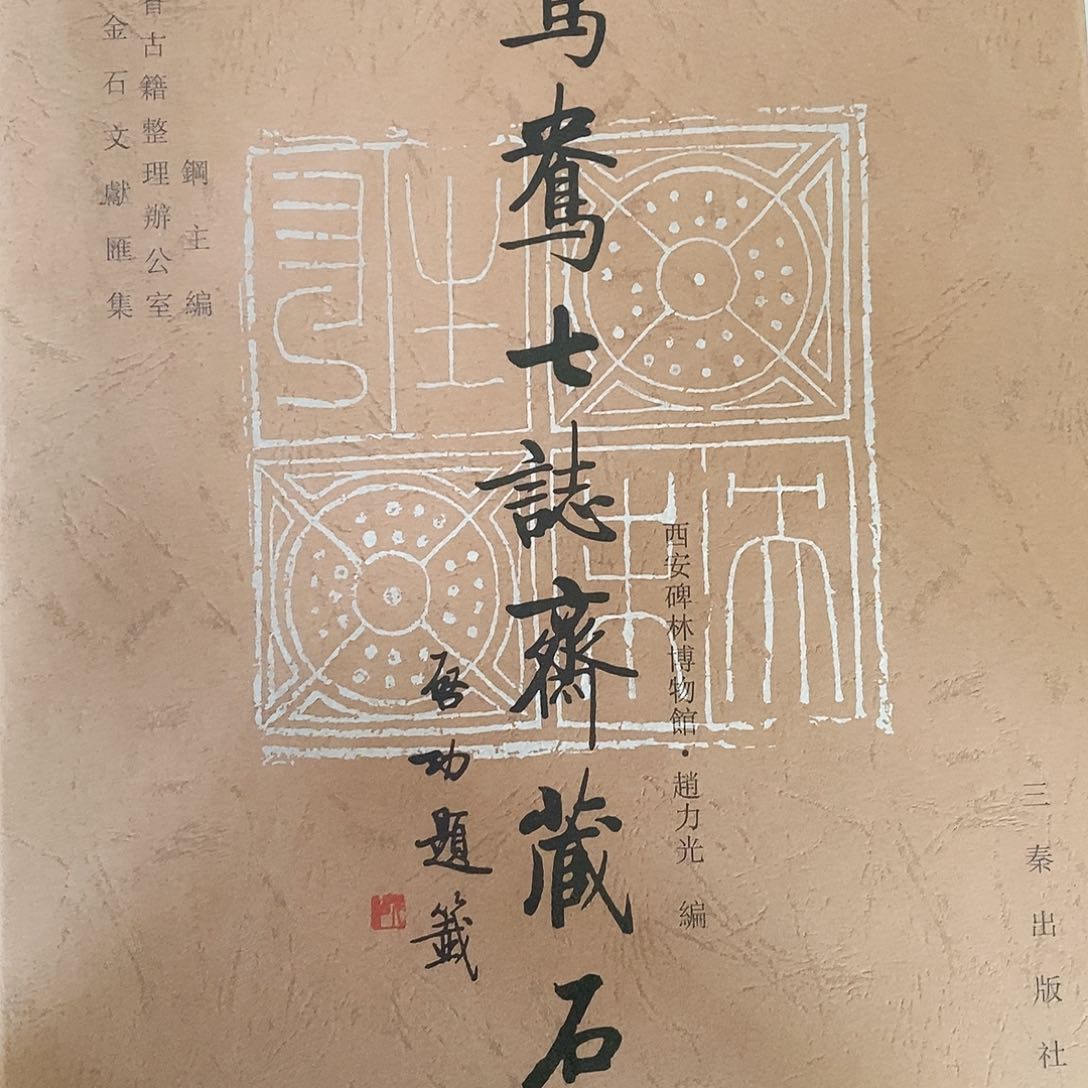 三秦出版社
西安碑林博物館·趙力光 編
鴛鴦七誌齋藏石
啓功題籤
鋼主編
省古籍整理辦公室
金石文獻匯集